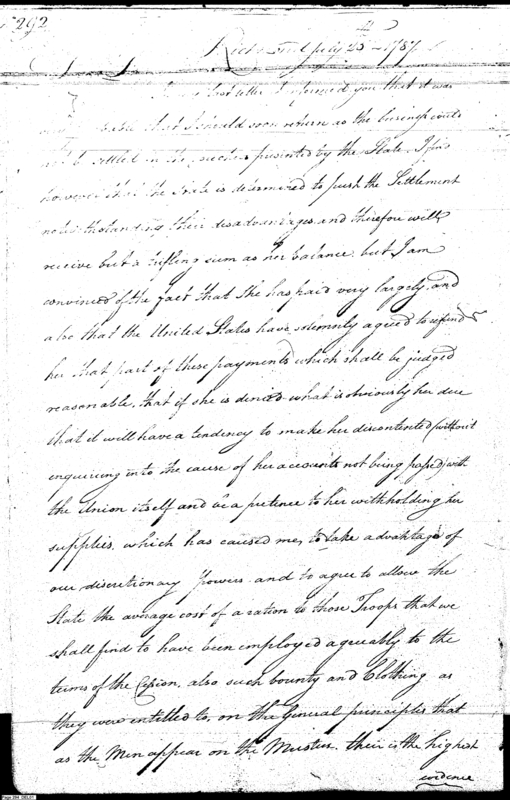 292
Richmond July 25th 1787
Dear Sir
last letter I informed you that it was
that I should soon return as the business could
not be settled on the vouchers presented by the State. I find
however that the State is determined to push the Settlement
notwithstanding their disadvantages and therefore will
receive but a trifling sum as her balance. but I am
convinced of the fact that She has paid very largely, and
also that the United States have solemnly agreed to refund
her that part of these payments which shall be judged
reasonable, that if she is denied what is obviously her due
that it will have a tendency to make her discontented (without
enquiring into the cause of her accounts not being passed) with
the Union itself and be a pretence to her withholding her
supplies, which has caused me, to take advantage of
our discretionary powers and to agree to allow the
State the average cost of a ration to those Troops that we
shall find to have been employed agreeably to the
terms of the Cession, also such bounty and Clothing as
they were entitled to, on the General principles that
as the Men appear on the Musters, their is the highest
evidence